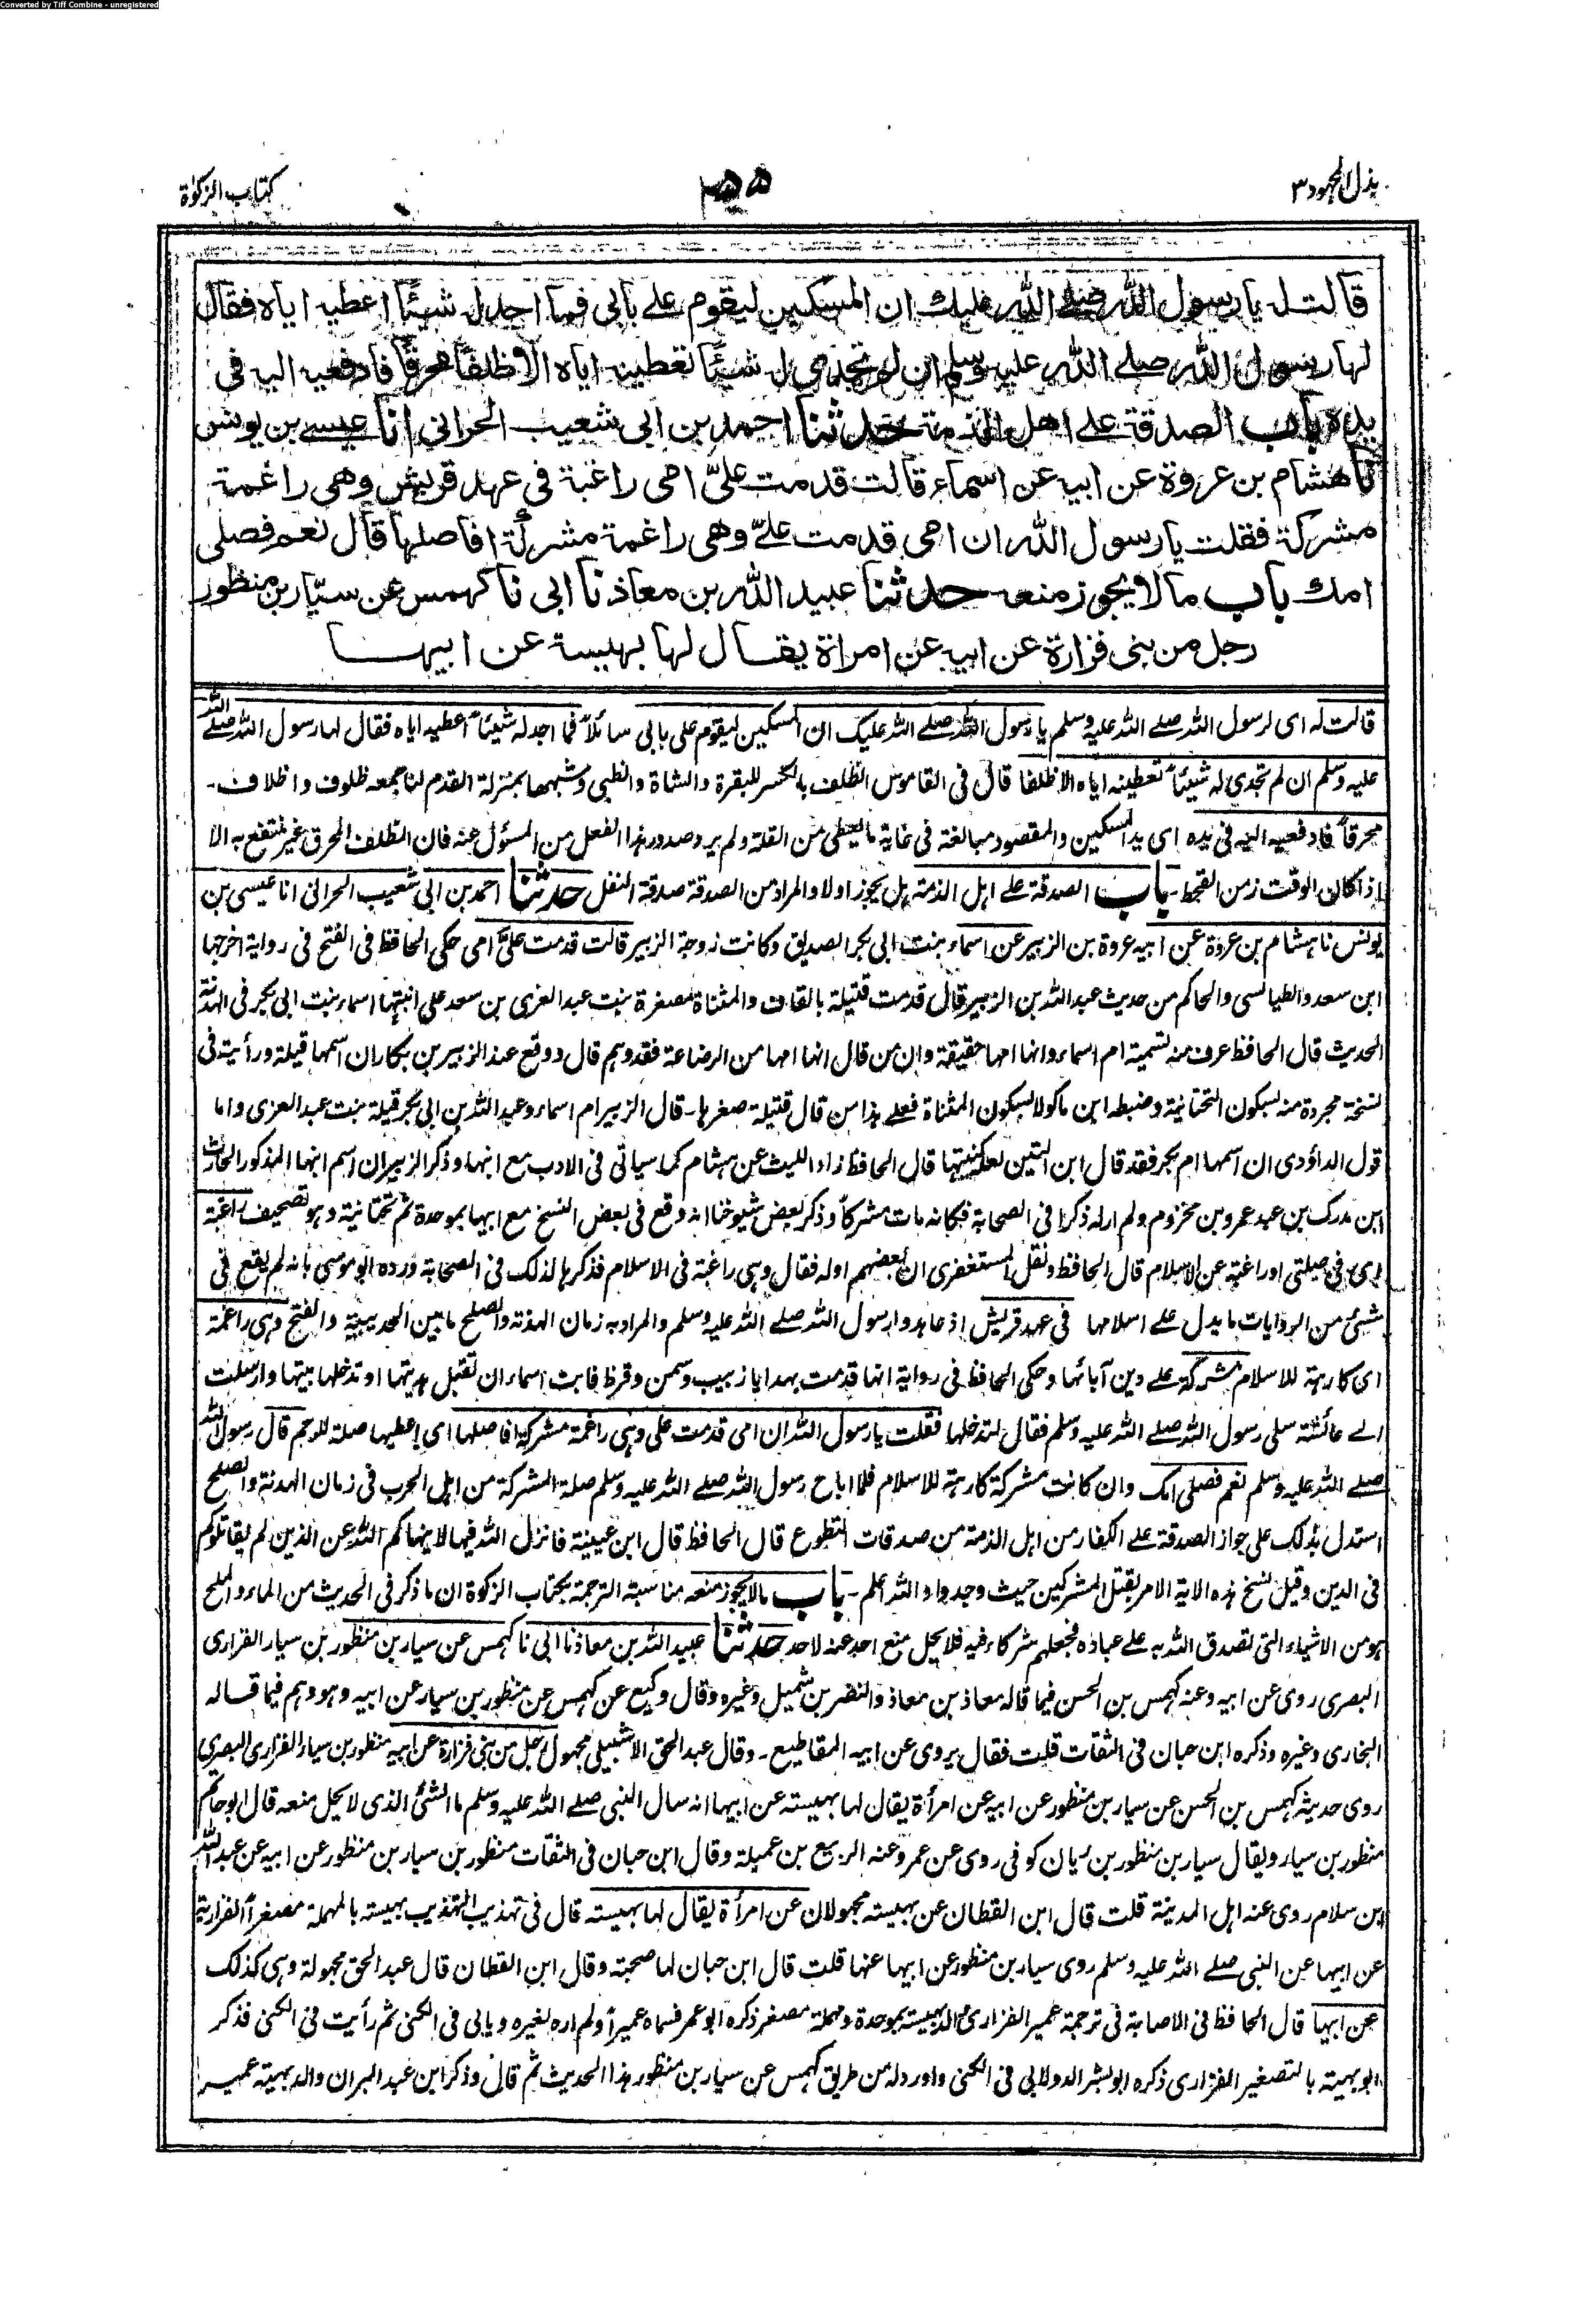 Converted by Tiff Combine - unregistered
بذل المجهود ٣
كتاب الزكوٰة
قالت له يا رسول الله صلے الله عليك ان المسكين ليقوم علے بابی فما اجد له شيئًا اعطيه اياه فقال
لها رسول الله صلے الله عليه وسلم ان لم تجدی له شيئًا تعطينه اياه الا ظلفًا محرقًا فادفعيه اليه فی
يده باب الصدقة علے اهل الذمة حدثنا احمد بن ابی شعيب الحرانی انا عيسے بن يونس
نا هشام بن عروة عن ابيه عن اسماء قالت قدمت علیّ امی راغبة فی عهد قريش وهی راغمة
مشركة فقلت يا رسول الله ان امی قدمت علیّ وهی راغمة مشركة افاصلها قال نعم فصلی
امك باب ما لا يجوز منعه حدثنا عبيد الله بن معاذ نا ابی نا كهمس عن سيّار بن منظور
رجل من بنی فزارة عن ابيه عن امراة يقال لها بهيسة عن ابيها
قالت له ای لرسول الله صلے الله عليه وسلم يا رسول الله صلے الله عليك ان المسكين ليقوم علی بابی سائلاً فما اجد له شيئاً اعطيه اياه فقال لها رسول الله صلے الله
عليه وسلم ان لم تجدی له شيئاً تعطينه اياه الا ظلفا قال فی القاموس الظلف بالكسر للبقرة والشاة والظبی وشبهها بمنزلة القدم لنا جمعه ظلوف واظلاف -
محرقاً فادفعيه اليه فی يده ای يد المسكين والمقصود مبالغة فی غاية ما يعطی من القلة ولم يرد صدور هذا الفعل من المسئول عنه فان الظلف المحرق غير منتفع به الا
اذا كان الوقت زمن القحط - باب الصدقة علے اهل الذمة هل يجوز او لا والمراد من الصدقة صدقة النفل حدثنا احمد بن ابی شعيب الحرانی انا عيسی بن
يونس نا هشام بن عروة عن ابيه عروة بن الزبير عن اسماء بنت ابی بكر الصديق وكانت زوجة الزبير قالت قدمت علیّ امی حكی الحافظ فی الفتح فی رواية اخرجها
ابن سعد والطيالسی والحاكم من حديث عبد الله بن الزبير قال قدمت قتيلة بالقاف والمثناة مصغرة بنت عبد العزی بن سعد علی ابنتها اسماء بنت ابی بكر فی الهدنة
الحديث قال الحافظ عرف منه تسمية ام اسماء وانها امها حقيقة وان من قال انها امها من الرضاعة فقد وهم قال ووقع عند الزبير بن بكار ان اسمها قيلة ورأيته فی
نسخة مجردة منه بسكون التحتانية وضبطه ابن ماكولا بسكون المثناة فعلے هذا من قال قتيلة صغرها - قال الزبير ام اسماء وعبد الله بن ابی بكر قيلة بنت عبد العزی واما
قول الداؤدی ان اسمها ام بكر فقد قال ابن التين لعله كنيتها قال الحافظ زاد الليث عن هشام كما سياتی فی الادب مع ابنها وذكر الزبير ان اسم ابنها المذكور الحارث
ابن مدرك بن عبد عمرو بن مخزوم ولم ار له ذكرا فی الصحابة فكانه مات مشركاً وذكر بعض شيوخنا انه وقع فی بعض النسخ مع ابيها بموحدة ثم تحتانية وهو تصحيف راغبة
ای فی صلتی او راغبة عن الاسلام قال الحافظ ونقل المستغفری ان بعضهم اوله فقال وهی راغبة فی الاسلام فذكرها لذلك فی الصحابة ورده ابو موسی بانه لم يقع فی
شئ من الروايات ما يدل علے اسلامها فی عهد قريش اذ عاهدوا رسول الله صلے الله عليه وسلم والمراد به زمان الهدنة والصلح ما بين الحديبية والفتح وهی راغمة
ای كارهة للاسلام مشركة علے دين آبائها وحكی الحافظ فی رواية انها قدمت بهدايا زبيب وسمن وقرظ فابت اسماء ان تقبل هديتها او تدخلها بيتها وارسلت
الے عائشة سلی رسول الله صلے الله عليه وسلم فقال لتدخلها فقلت يا رسول الله ان امی قدمت علی وهی راغمة مشركة افاصلها ای اعطيها صلة للرحم قال رسول الله
صلے الله عليه وسلم نعم فصلی امك وان كانت مشركة كارهة للاسلام فلما اباح رسول الله صلے الله عليه وسلم صلة المشركة من اهل الحرب فی زمان الهدنة والصلح
استدل بذلك علی جواز الصدقة علے الكفار من اهل الذمة من صدقات التطوع قال الحافظ قال ابن عيينة فانزل الله فيها لا ينهاكم الله عن الذين لم يقاتلوكم
فی الدين وقيل نسخ هذه الاية الامر بقتل المشركين حيث وجدوا والله اعلم - باب ما لا يجوز منعه مناسبة الترجمة بكتاب الزكوة ان ما ذكر فی الحديث من الماء والملح
هو من الاشياء التی تصدق الله به علے عباده فجعلهم شركاء فيه فلا يحل منع احد عنه لاحد حدثنا عبيد الله بن معاذ نا ابی نا كهمس عن سيار بن منظور بن سيار الفزاری
البصری روی عن ابيه وعنه كهمس بن الحسن فيما قاله معاذ بن معاذ والنضر بن شميل وغيره وقال وكيع عن كهمس عن منظور بن سيار عن ابيه وهو وهم فيما قاله
البخاری وغيره وذكره ابن حبان فی الثقات قلت فقال يروی عن ابيه المقاطيع - وقال عبد الحق الاشبيلی مجهول رجل من بنی فزارة عن ابيه منظور بن سيار الفزاری البصری
روی حديثه كهمس بن الحسن عن سيار بن منظور عن ابيه عن امرأة يقال لها بهيسة عن ابيها انه سال النبی صلے الله عليه وسلم ما الشئ الذی لا يحل منعه قال ابو حاتم
منظور بن سيار ويقال سيار بن منظور بن ريان كوفی روی عن عمر وعنه الربيع بن عميلة وقال ابن حبان فی الثقات منظور بن سيار بن منظور عن ابيه عن عبد الله
ابن سلام روی عنه اهل المدينة قلت قال ابن القطان عن بهيسة مجهولان عن امرأة يقال لها بهيسة قال فی تهذيب التهذيب بهيسة بالمهملة مصغراً الفزارية
عن ابيها عن النبی صلے الله عليه وسلم روی سيار بن منظور عن ابيها عنها قلت قال ابن حبان لها صحبة وقال ابن القطان قال عبد الحق مجهولة وهی كذلك
عن ابيها قال الحافظ فی الاصابة فی ترجمة عمير الفزاری والد بهيسة بموحدة ومهملة مصغر ذكره ابو عمر فسماه عميراً ولم اره لغيره وياتی فی الكنی ثم رأيت فی الكنی فذكر
ابو بهيسة بالتصغير الفزاری ذكره ابو بشر الدولابی فی الكنی واورد له من طريق كهمس عن سيار بن منظور هذا الحديث ثم قال وذكر ابن عبد البر ان والد بهيسة عمير